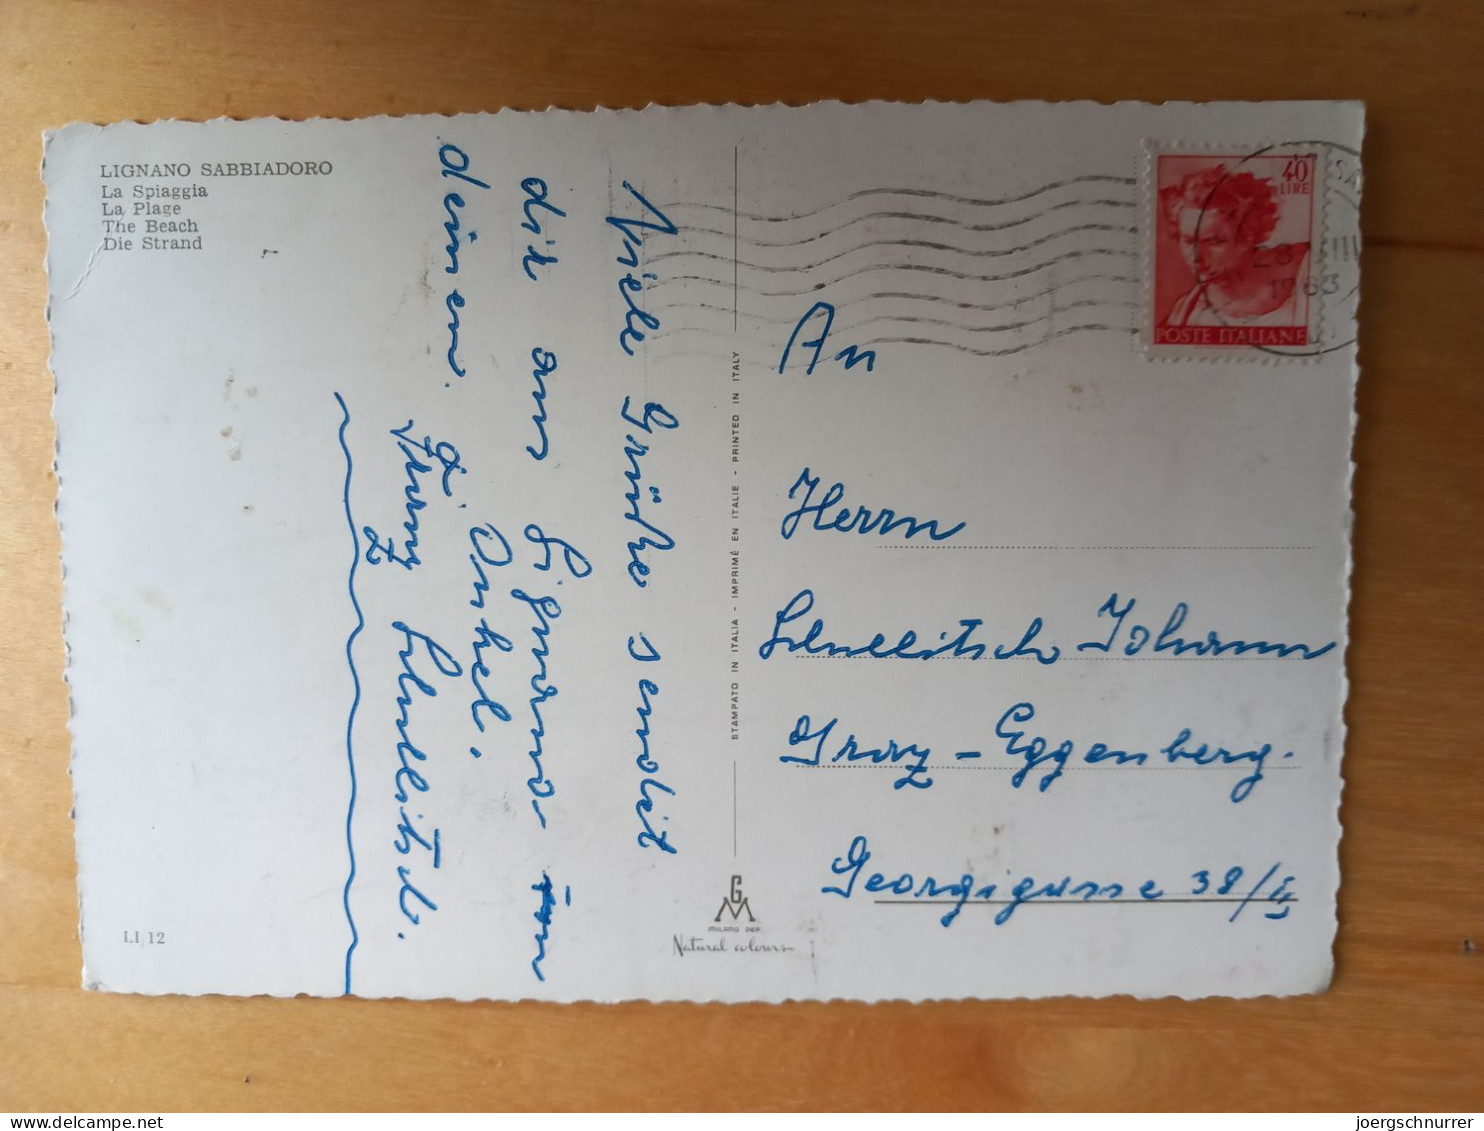 LIGNANO SABBIADORO
La Spiaggia
La Plage
The Beach
Die Strand
Viele Grüße sendet
dir aus Lignano von
deinem Onkel.
Franz
STAMPATO IN ITALIA - IMPRIMÉ EN ITALIE - PRINTED IN ITALY
GM
MILANO DEP
Natural colours
LI/12
40
LIRE
POSTE ITALIANE
1963
An
Herrn
Johann
Graz - Eggenberg.
Georgigasse 38/II
delcampe.net
joergschnurrer